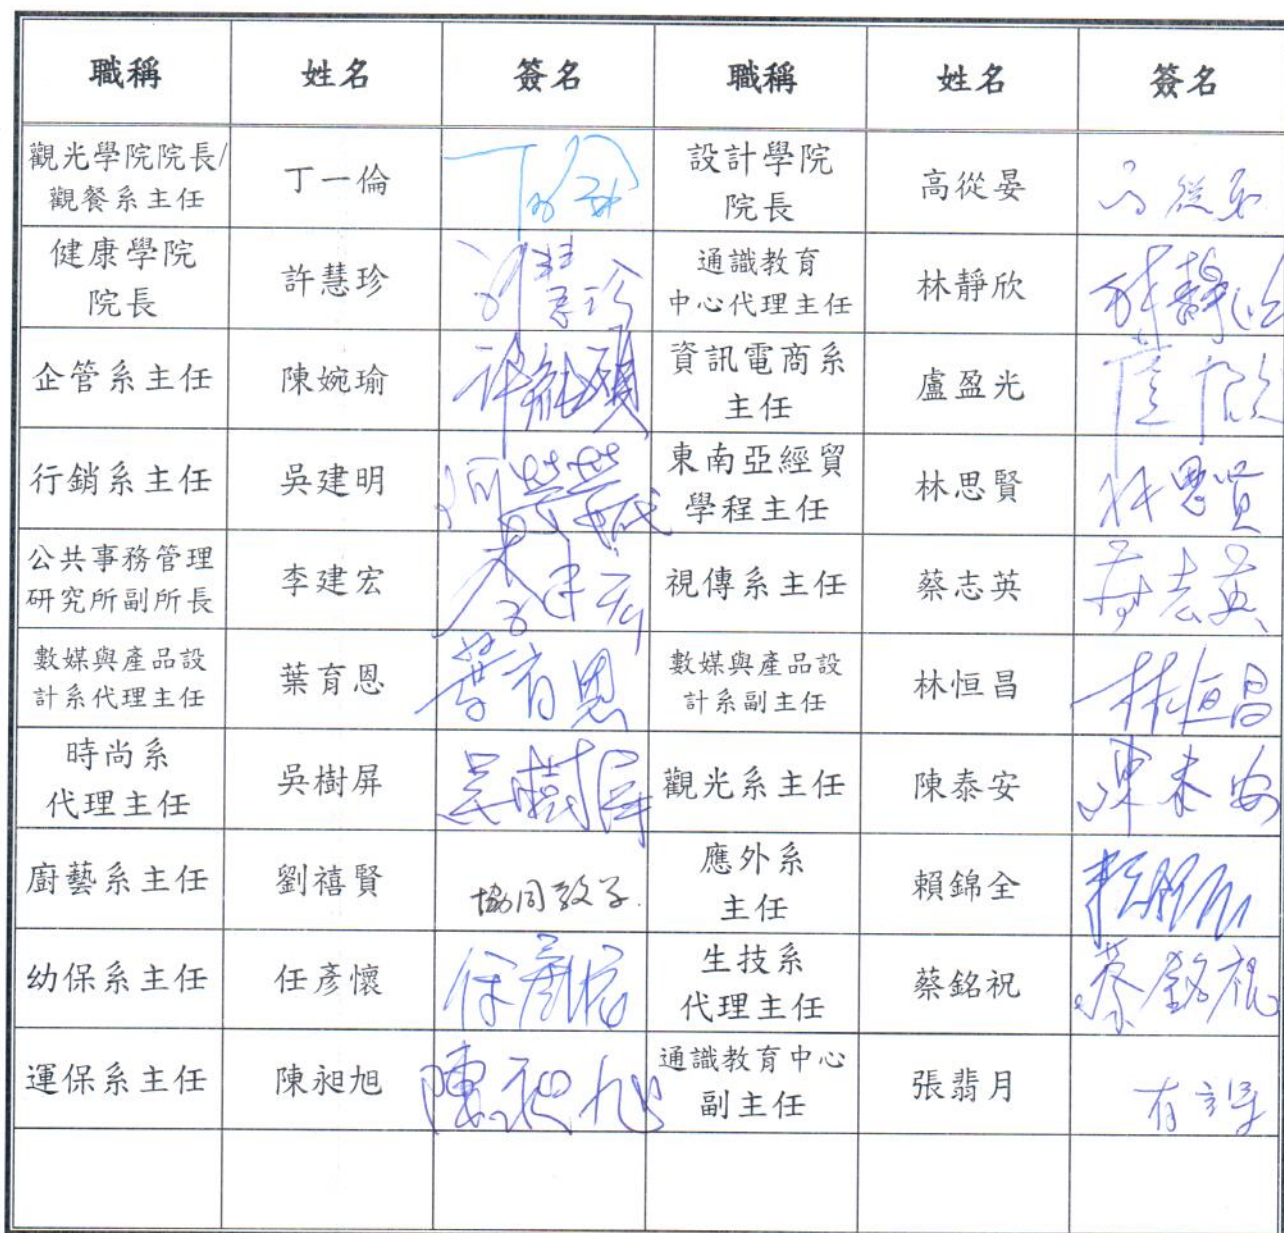 職稱 姓名 簽名 職稱 姓名 簽名
觀光學院院長/
觀餐系主任 丁一倫 設計學院
院長 高從晏 高從晏
健康學院
院長 許慧珍 許慧珍 通識教育
中心代理主任 林靜欣 林靜欣
企管系主任 陳婉瑜 資訊電商系
主任 盧盈光
行銷系主任 吳建明 東南亞經貿
學程主任 林思賢 林思賢
公共事務管理
研究所副所長 李建宏 李建宏 視傳系主任 蔡志英 蔡志英
數媒與產品設
計系代理主任 葉育恩 葉育恩 數媒與產品設
計系副主任 林恒昌 林恒昌
時尚系
代理主任 吳樹屏 吳樹屏 觀光系主任 陳泰安 陳泰安
廚藝系主任 劉禧賢 協同教學 應外系
主任 賴錦全
幼保系主任 任彥懷 生技系
代理主任 蔡銘祝 蔡銘祝
運保系主任 陳昶旭 陳昶旭 通識教育中心
副主任 張翡月 有課